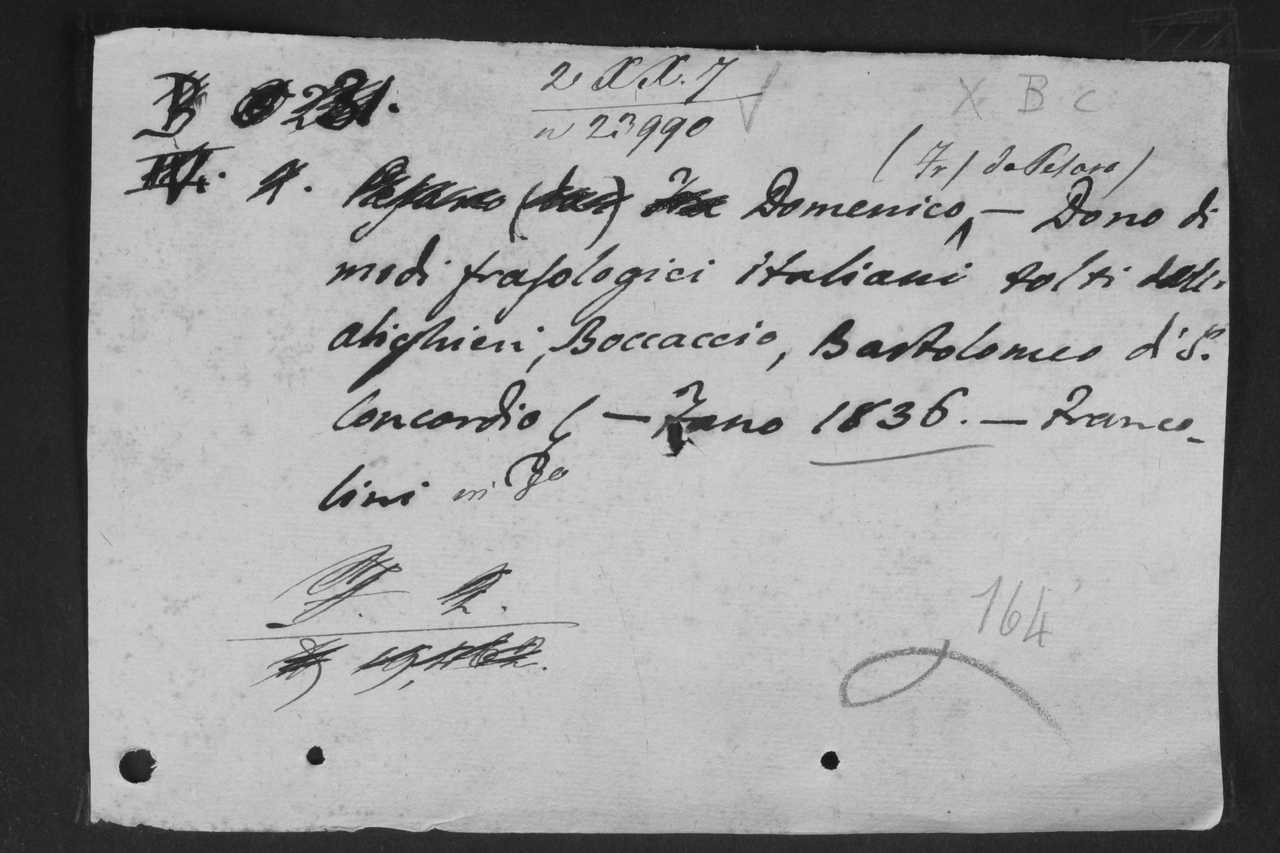 2 X X. 7
n 23990
X B C
B 
IV. 4.
(Fr/ da Pesaro)
Pesaro Domenico, — Dono di
modi frasologici italiani tolti dall'
alighieri, Boccaccio, Bartolomeo d' S.
Concordio ( — Fano 1836. — Franco-
lini in 8o
2.
164